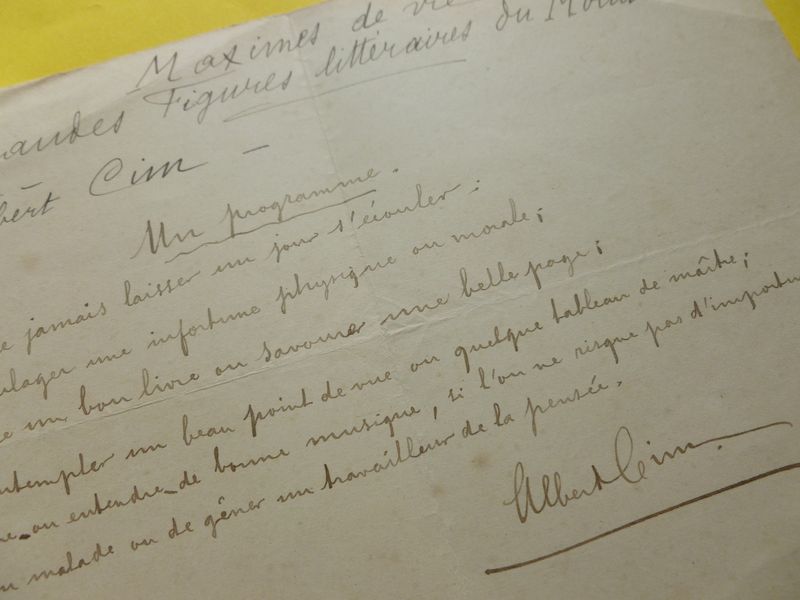 Maximes de vie
andes Figures littéraires du Mon
bert Cim —
Un programme.
e jamais laisser un jour s'écouler :
ulager une infortune physique ou morale ;
e un bon livre ou savourer une belle page ;
ntempler un beau point de vue ou quelque tableau de maître ;
re ou entendre de bonne musique, si l'on ne risque pas d'importun
un malade ou de gêner un travailleur de la pensée.
Albert Cim.